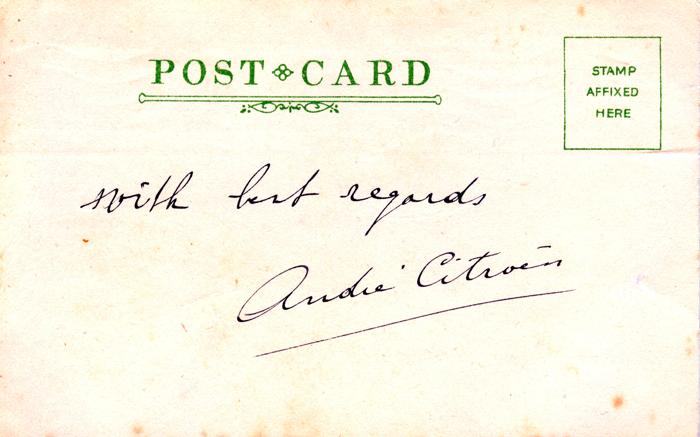 POST CARD
STAMP
AFFIXED
HERE
With best regards
André Citroën